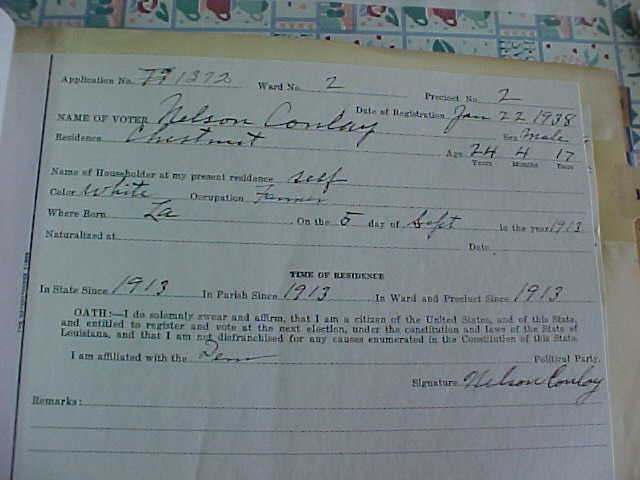 Application No. 1372 Ward No. 2 Precinct No. 2
Date of Registration Jan 22 1938
NAME OF VOTER Nelson Conlay Sex Male
Residence Chestnut Age 24 4 17
Years Months Days
Name of Householder at my present residence self
Color White Occupation Farmer
Where Born La On the 5 day of Sept in the year 1913
Naturalized at Date
TIME OF RESIDENCE
In State Since 1913 In Parish Since 1913 In Ward and Precinct Since 1913
OATH:—I do solemnly swear and affirm, that I am a citizen of the United States, and of this State,
and entitled to register and vote at the next election, under the constitution and laws of the State of
Louisiana, and that I am not disfranchised for any causes enumerated in the Constitution of this State.
I am affiliated with the Dem Political Party.
Signature Nelson Conlay
Remarks: